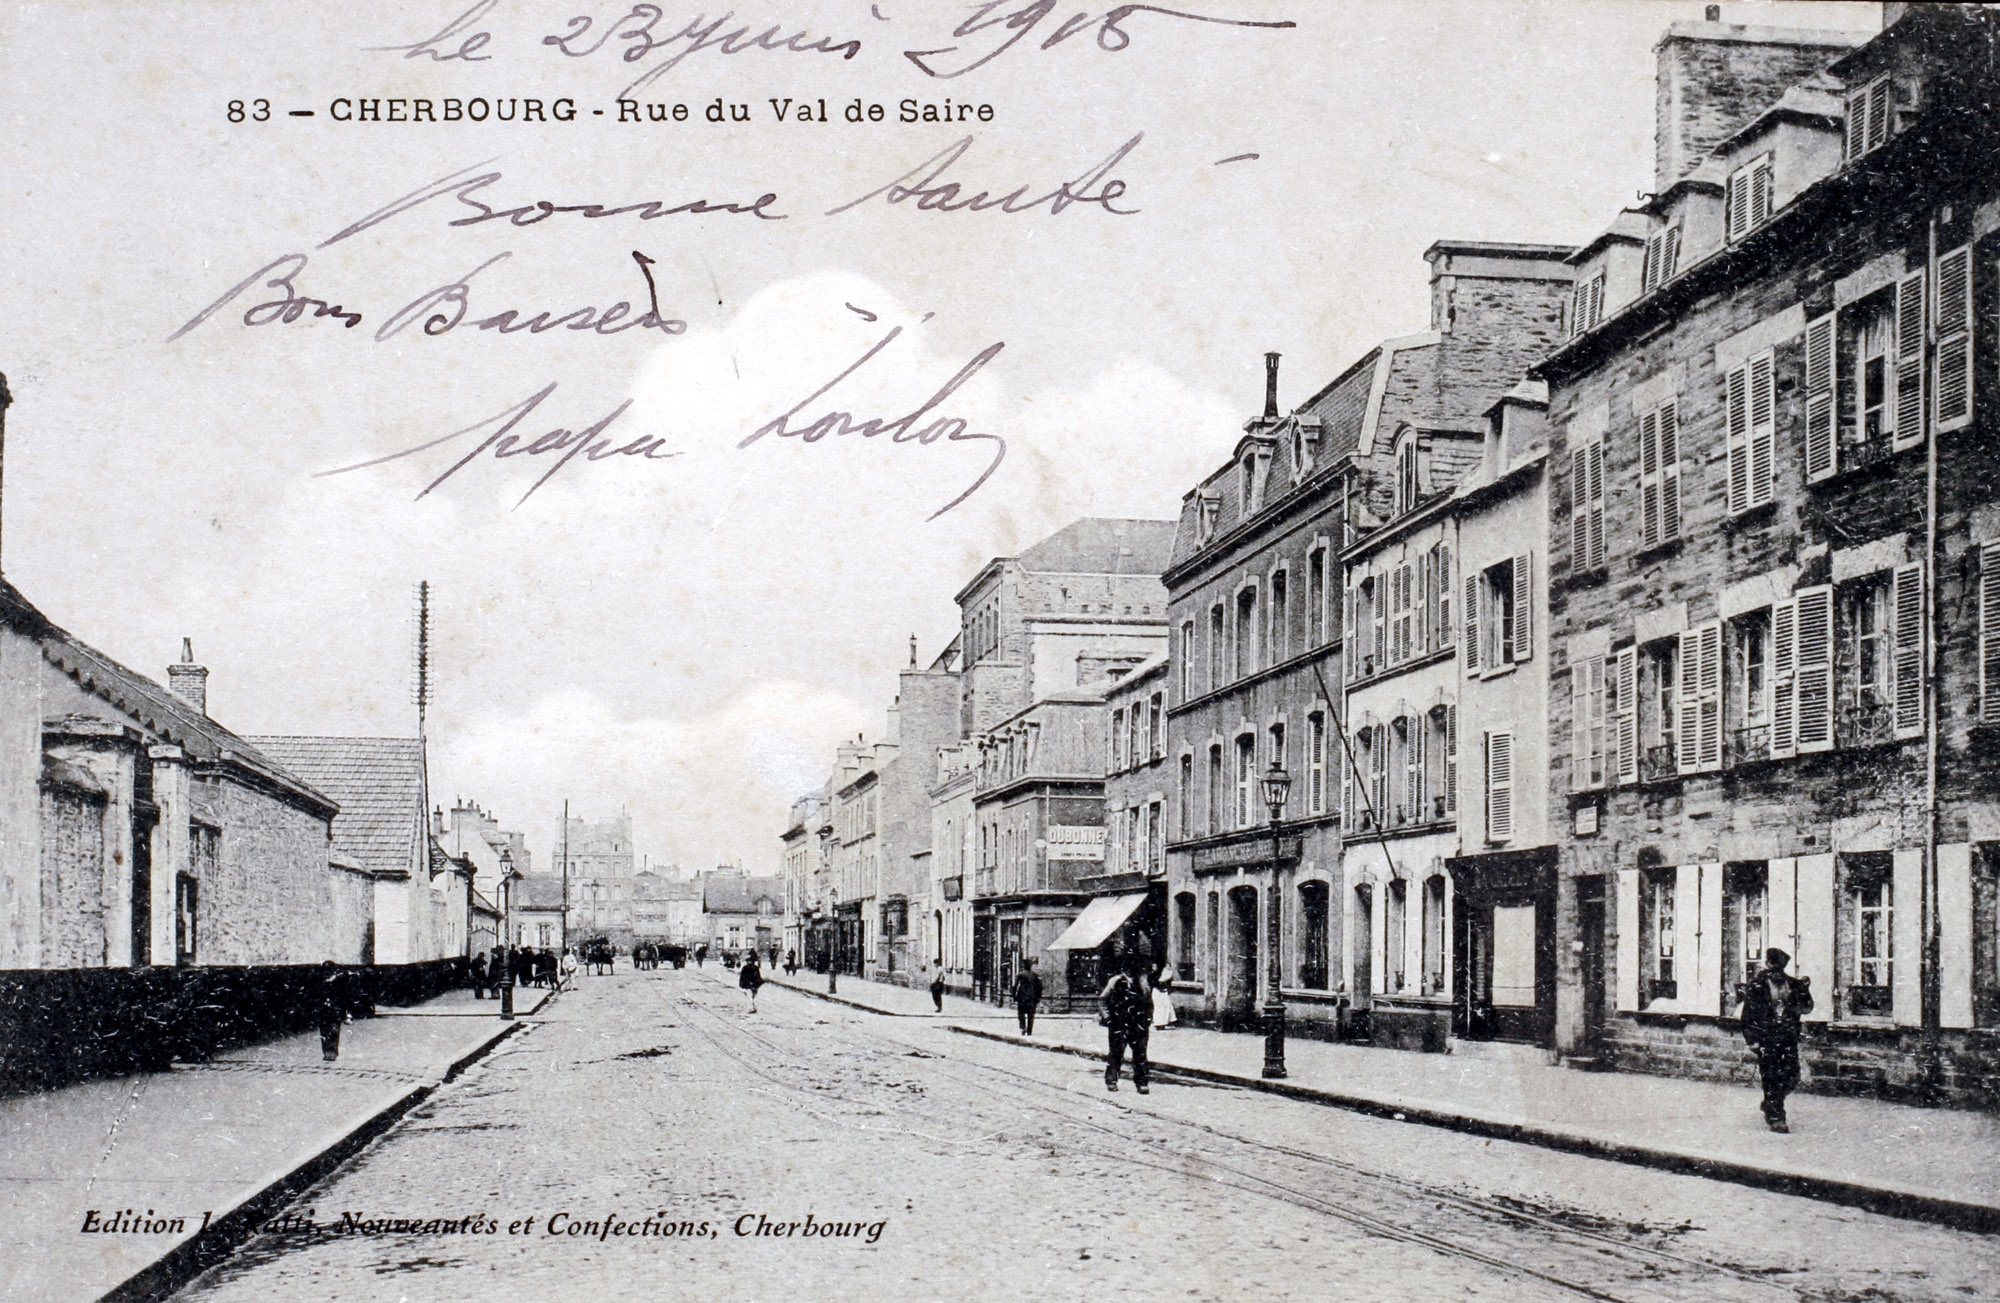 Le 23 juin 1915
83 — CHERBOURG - Rue du Val de Saire
Bonne santé
Bons Baisers
papa
DUBONNE
Edition L. Ratti, Nouveautés et Confections, Cherbourg